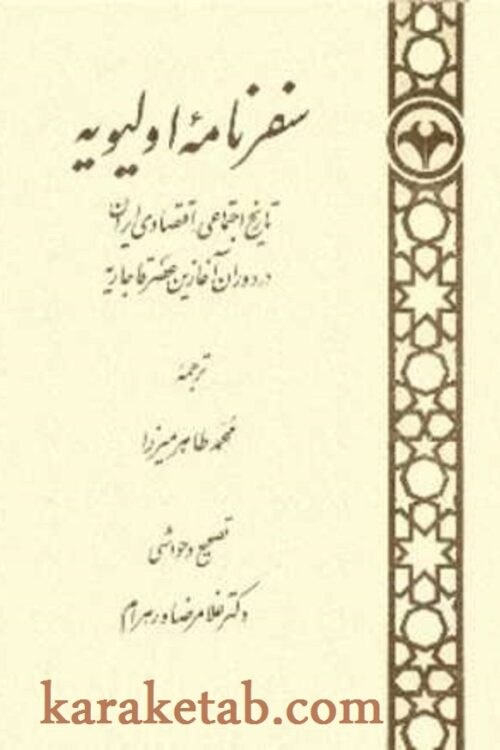 سفرنامهٔ اولیویه
تاریخ اجتماعی اقتصادی ایران
در دوران آغازین عصر قاجاریه
ترجمهٔ
محمد طاهر میرزا
تصحیح و حواشی
دکتر غلامرضا ورهرام
karaketab.com